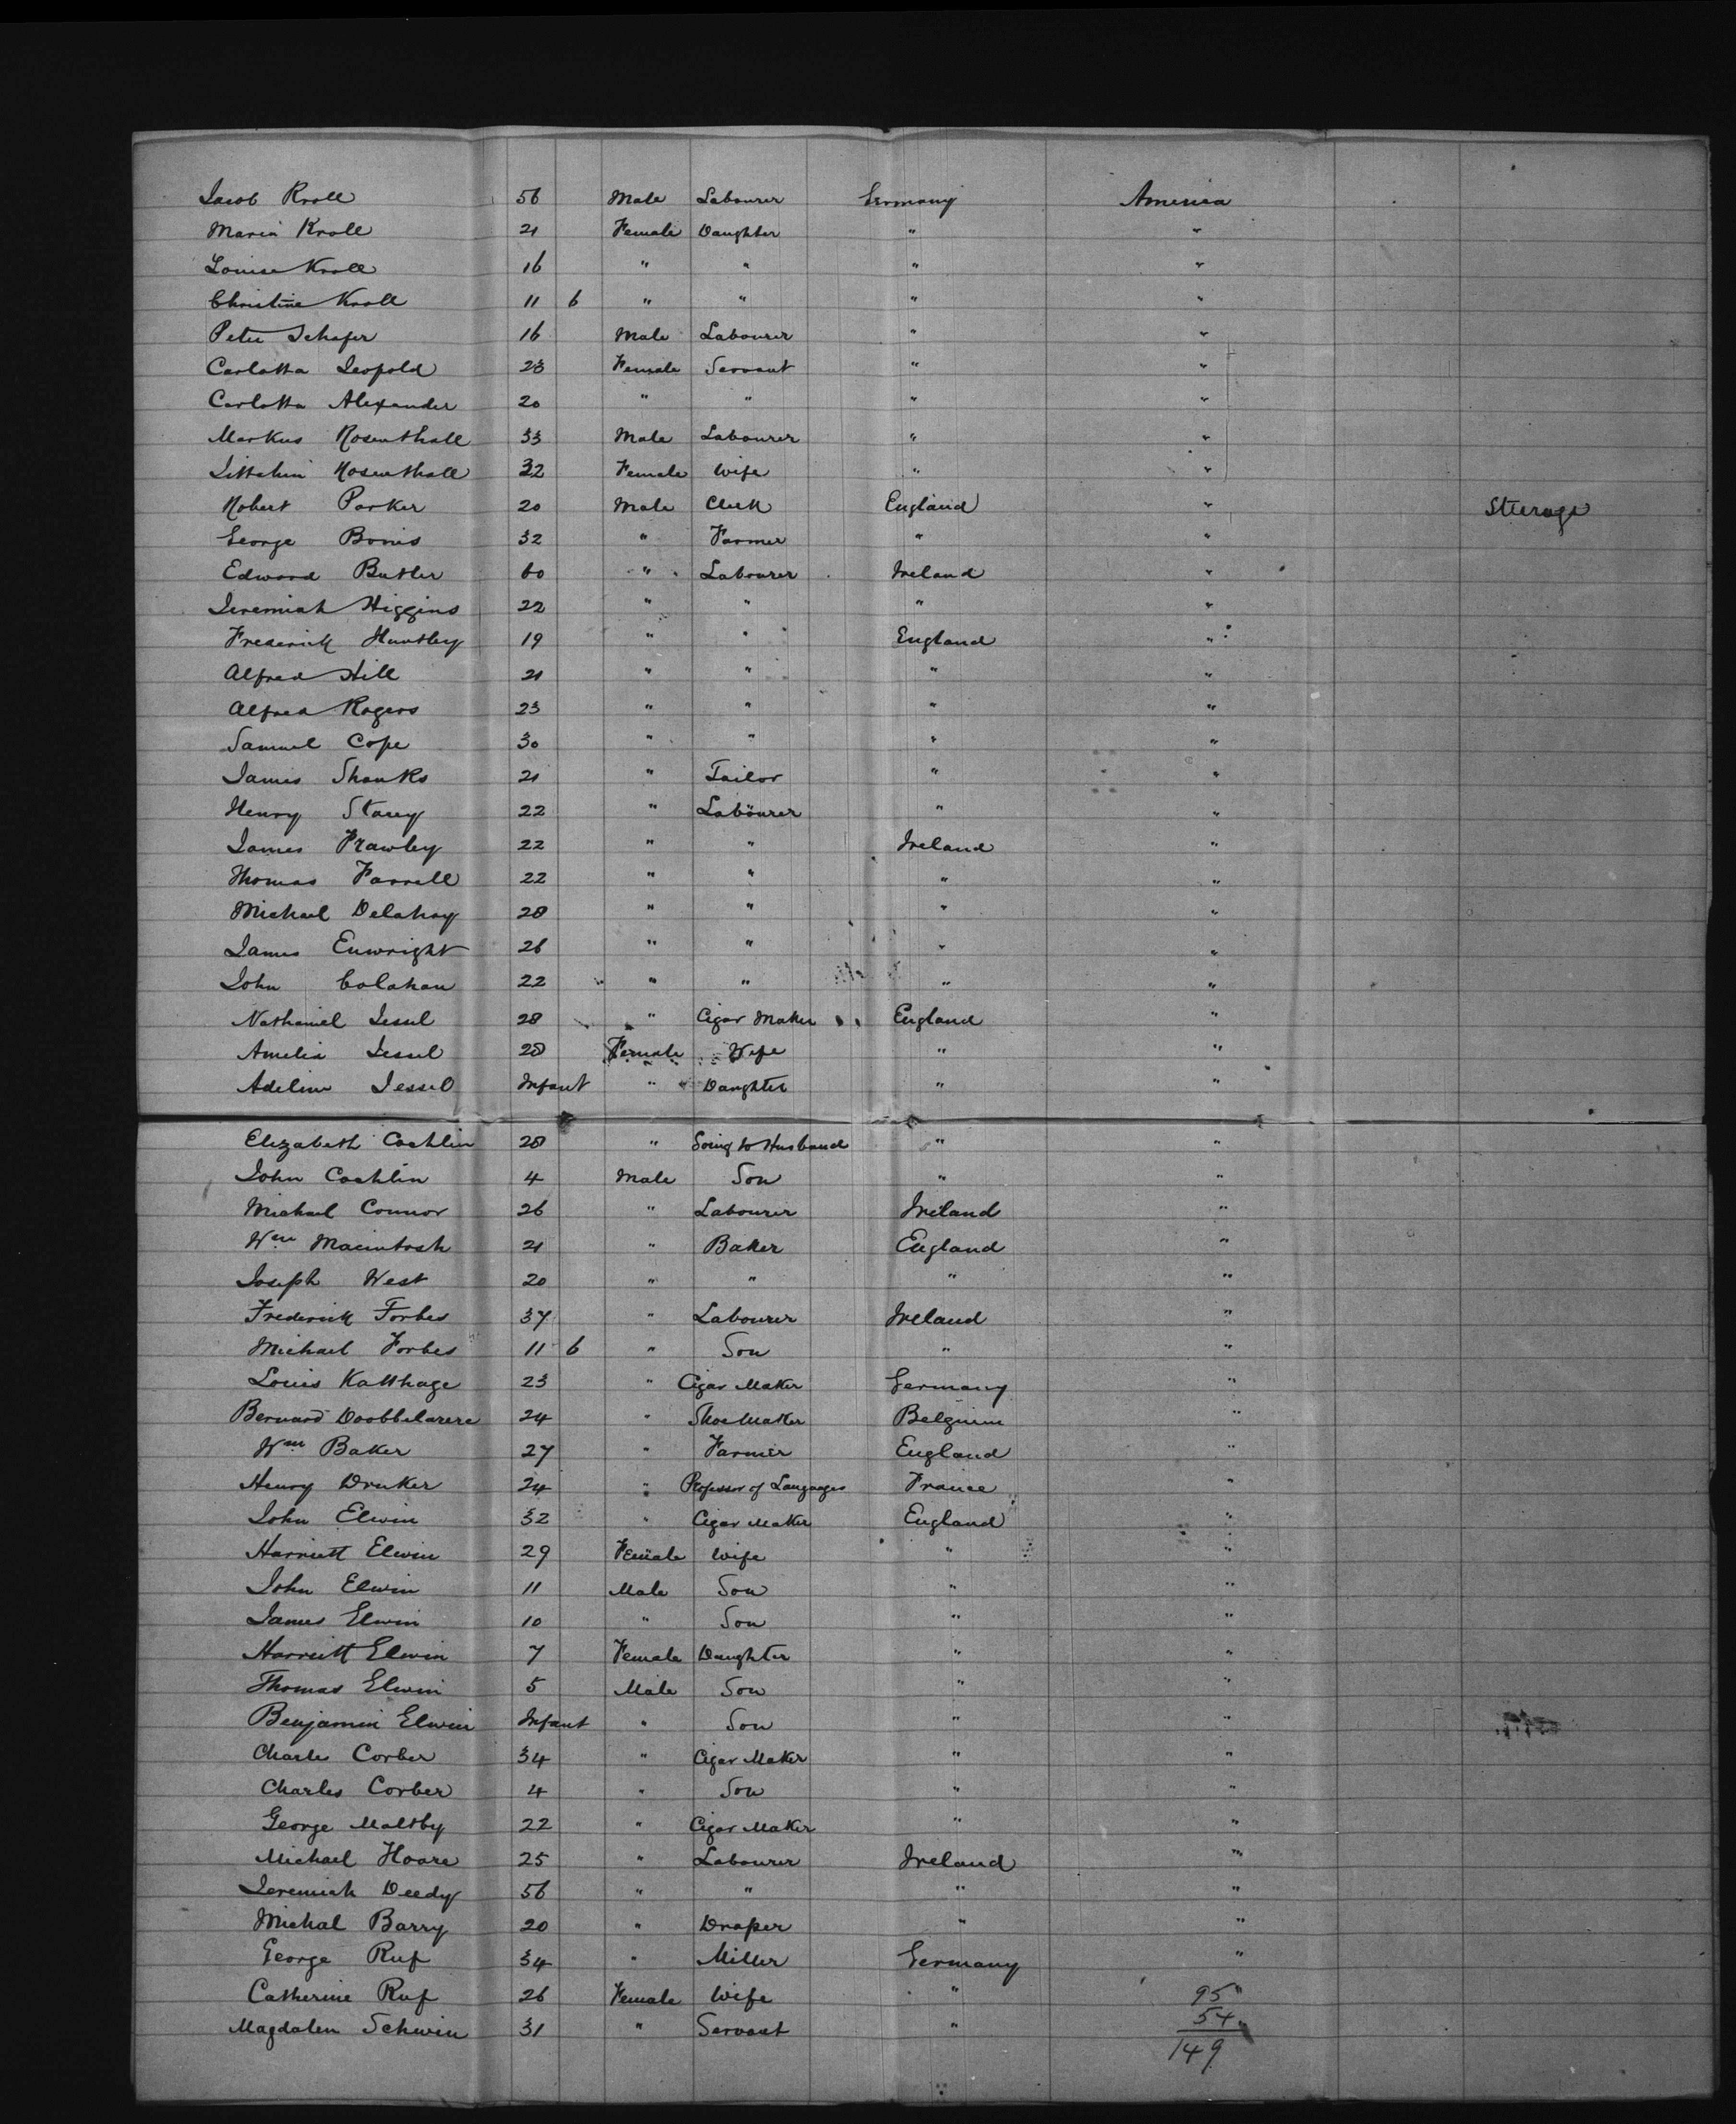 Jacob Kroll 56 Male Labourer Germany America
Maria Kroll 21 Female Daughter " "
Louisa Kroll 16 " " " "
Christine Kroll 11 6 " " " "
Peter Schafer 16 Male Labourer " "
Carlotta Leopold 23 Female Servant " "
Carlotta Alexander 20 " " " "
Markus Rosenthall 33 Male Labourer " "
Rosenthall 32 Female Wife " "
Robert Parker 20 Male Clerk England " Steerage
George 32 " Farmer " "
Edward Butler 60 " Labourer Ireland "
Jeremiah Higgins 22 " " " "
Frederick Huntley 19 " " England "
Alfred Hill 21 " " " "
Alfred Rogers 23 " " " "
Samuel Cope 30 " " " "
James Shanks 21 " Tailor " "
Henry Stacey 22 " Labourer " "
James Frawley 22 " " Ireland "
Thomas Farrell 22 " " " "
Michael Delahoy 28 " " " "
James Enwright 26 " " " "
John Colahan 22 " " " "
Nathaniel Jessel 28 " Cigar Maker England "
Amelia Jessel 28 Female Wife " "
Adeline Jessel Infant " Daughter " "
Elizabeth Coghlin 28 " Going to Husband " "
John Coghlin 4 Male Son " "
Michael Connor 26 " Labourer Ireland "
Wm Macintosh 21 " Baker England "
Joseph West 20 " " " "
Frederick Forbes 37 " Labourer Ireland "
Michael Forbes 11 6 " Son " "
Louis Katthage 23 " Cigar Maker Germany "
Bernard Doobbelarere 24 " Shoe Maker Belgium "
Wm Baker 27 " Farmer England "
Henry Druker 24 " Professor of Languages France "
John Elwin 32 " Cigar Maker England "
Harriett Elwin 29 Female Wife " "
John Elwin 11 Male Son " "
James Elwin 10 " Son " "
Harriett Elwin 7 Female Daughter " "
Thomas Elwin 5 Male Son " "
Benjamin Elwin Infant " Son " "
Charles Corber 34 " Cigar Maker " "
Charles Corber 4 " Son " "
George Maltby 22 " Cigar Maker " "
Michael Hoare 25 " Labourer Ireland "
Jeremiah Deedy 56 " " " "
Michal Barry 20 " Draper " "
George Ruf 34 " Miller Germany "
Catherine Ruf 26 Female Wife " 95 "
Magdalen Schwin 31 " Servant " 54 "
149